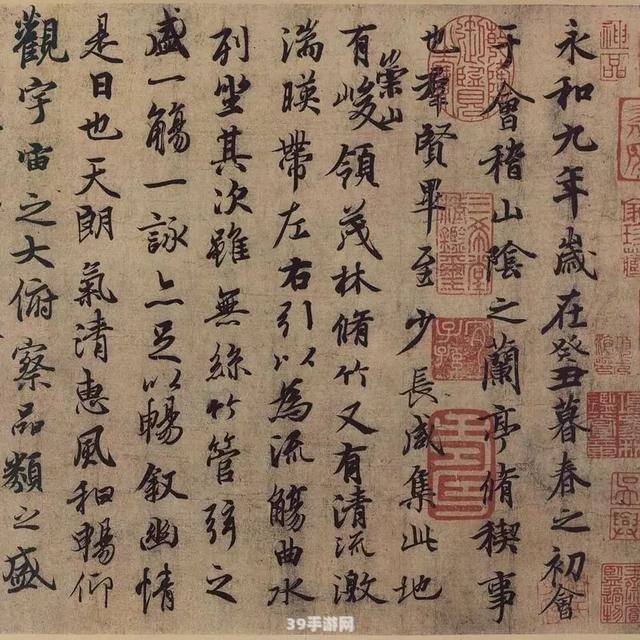 神品
永和九年歲在癸丑暮春之初會
于會稽山陰之蘭亭脩稧事
也羣賢畢至少長咸集此地
有崇山峻領茂林脩竹又有清流激
湍暎帶左右引以為流觴曲水
列坐其次雖無絲竹管弦之
盛一觴一詠亦足以暢敘幽情
是日也天朗氣清惠風和暢仰
觀宇宙之大俯察品類之盛
39手游网